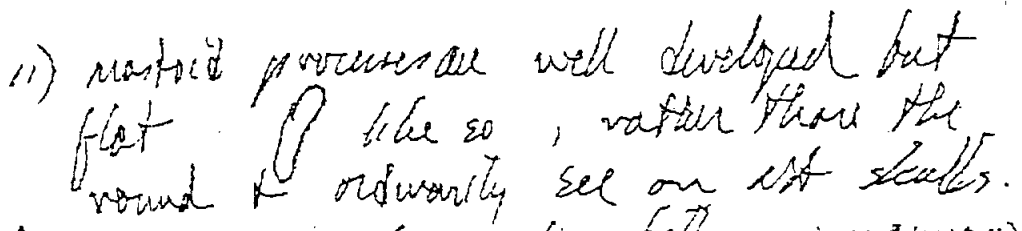 11) mastoid processes are well developed but
flat like so, rather than the
round I ordinarily see on skulls.